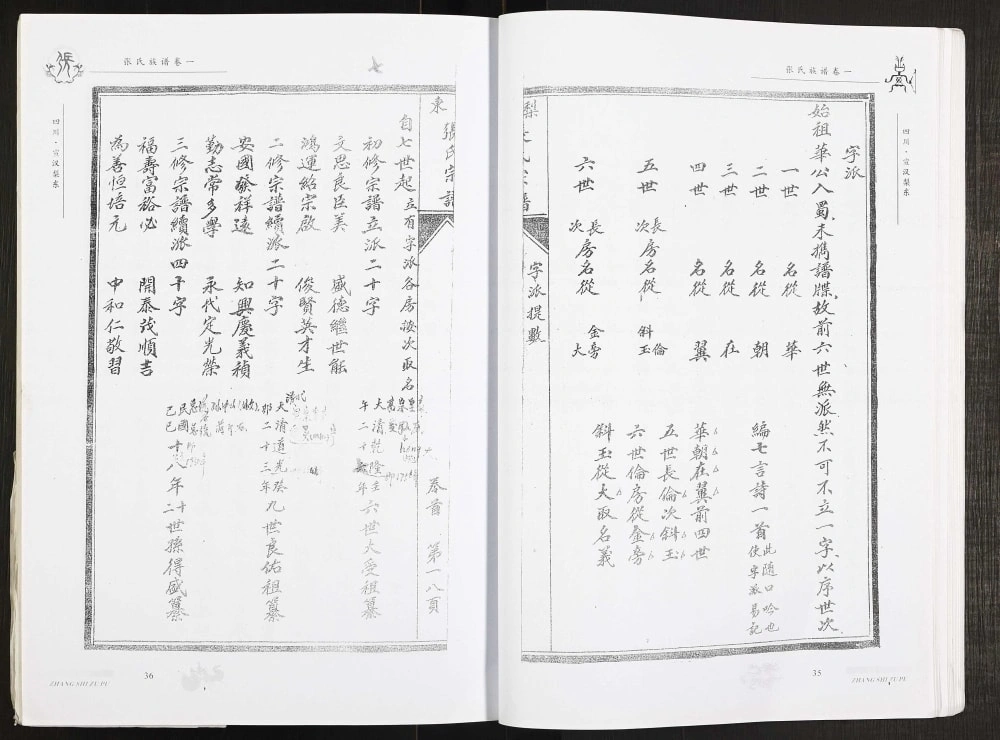 张氏族谱卷一
四川·宣汉梨东
字派
始祖華公入蜀未擕譜牒故前六世無派然不可不立一字以序世次
一世 名從 華
二世 名從 朝
三世 名從 在
四世 名從 翼
五世 長房名從 倫
次房名從 斜玉
六世 長房名從 金旁
次房名從 大
編七言詩一首 此随口吟也
使字派易記
華朝在翼前四世
五世長倫次斜玉
六世倫房從金旁
斜玉從大取名義
35
ZHANG SHI ZU PU
张氏族谱卷一
四川·宣汉梨东
字派提數
東 張氏宗譜
卷首 第一八頁
自七世起立有字派各房按次取名
初修宗譜立派二十字
文思良臣美 盛德繼世能
鴻運紹宗啟 俊賢英才生
大清乾隆
午二十 年 六世大受祖纂
二修宗譜續派二十字
安國發祥遠 知興慶義禎
勤志常多學 承代定光榮
大清道光癸
卯二十三年 九世良佑祖纂
三修宗譜續派四十字
福壽富裕必 開泰茂順吉
為善恒培元 中和仁敬習
民國
己巳十八年 十二世孫得盛纂
36
ZHANG SHI ZU PU